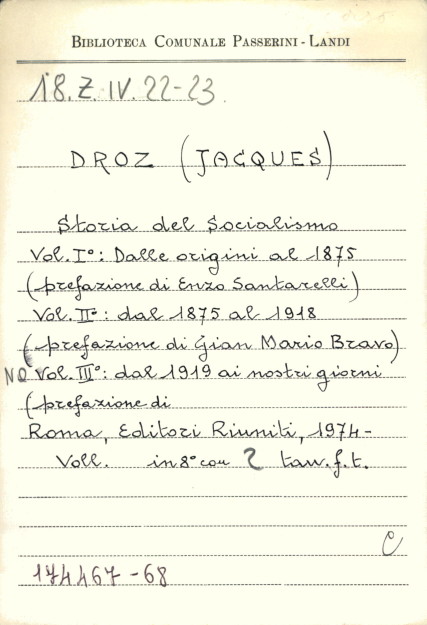 BIBLIOTECA COMUNALE PASSERINI - LANDI
18. Z. IV. 22-23.
DROZ (JACQUES)
Storia del Socialismo
Vol. I°: Dalle origini al 1875
(prefazione di Enzo Santarelli)
Vol. II°: dal 1875 al 1918
(prefazione di Gian Mario Bravo)
NO Vol. III°: dal 1919 ai nostri giorni
(prefazione di
Roma, Editori Riuniti, 1974-
Voll. in 8° con 2 tav. f. t.
C
174467-68